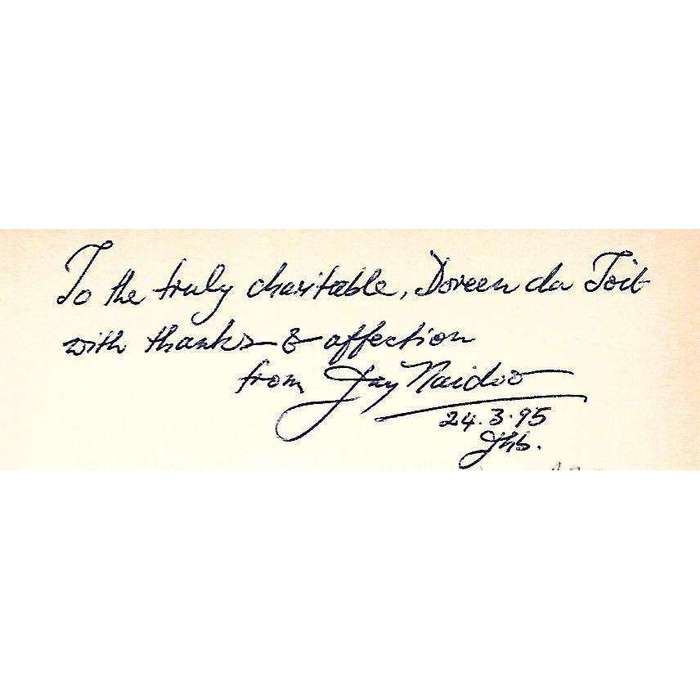 To the truly charitable, Doreen du Toit
with thanks & affection
from Jay Naidoo
24.3.95
Jhb.